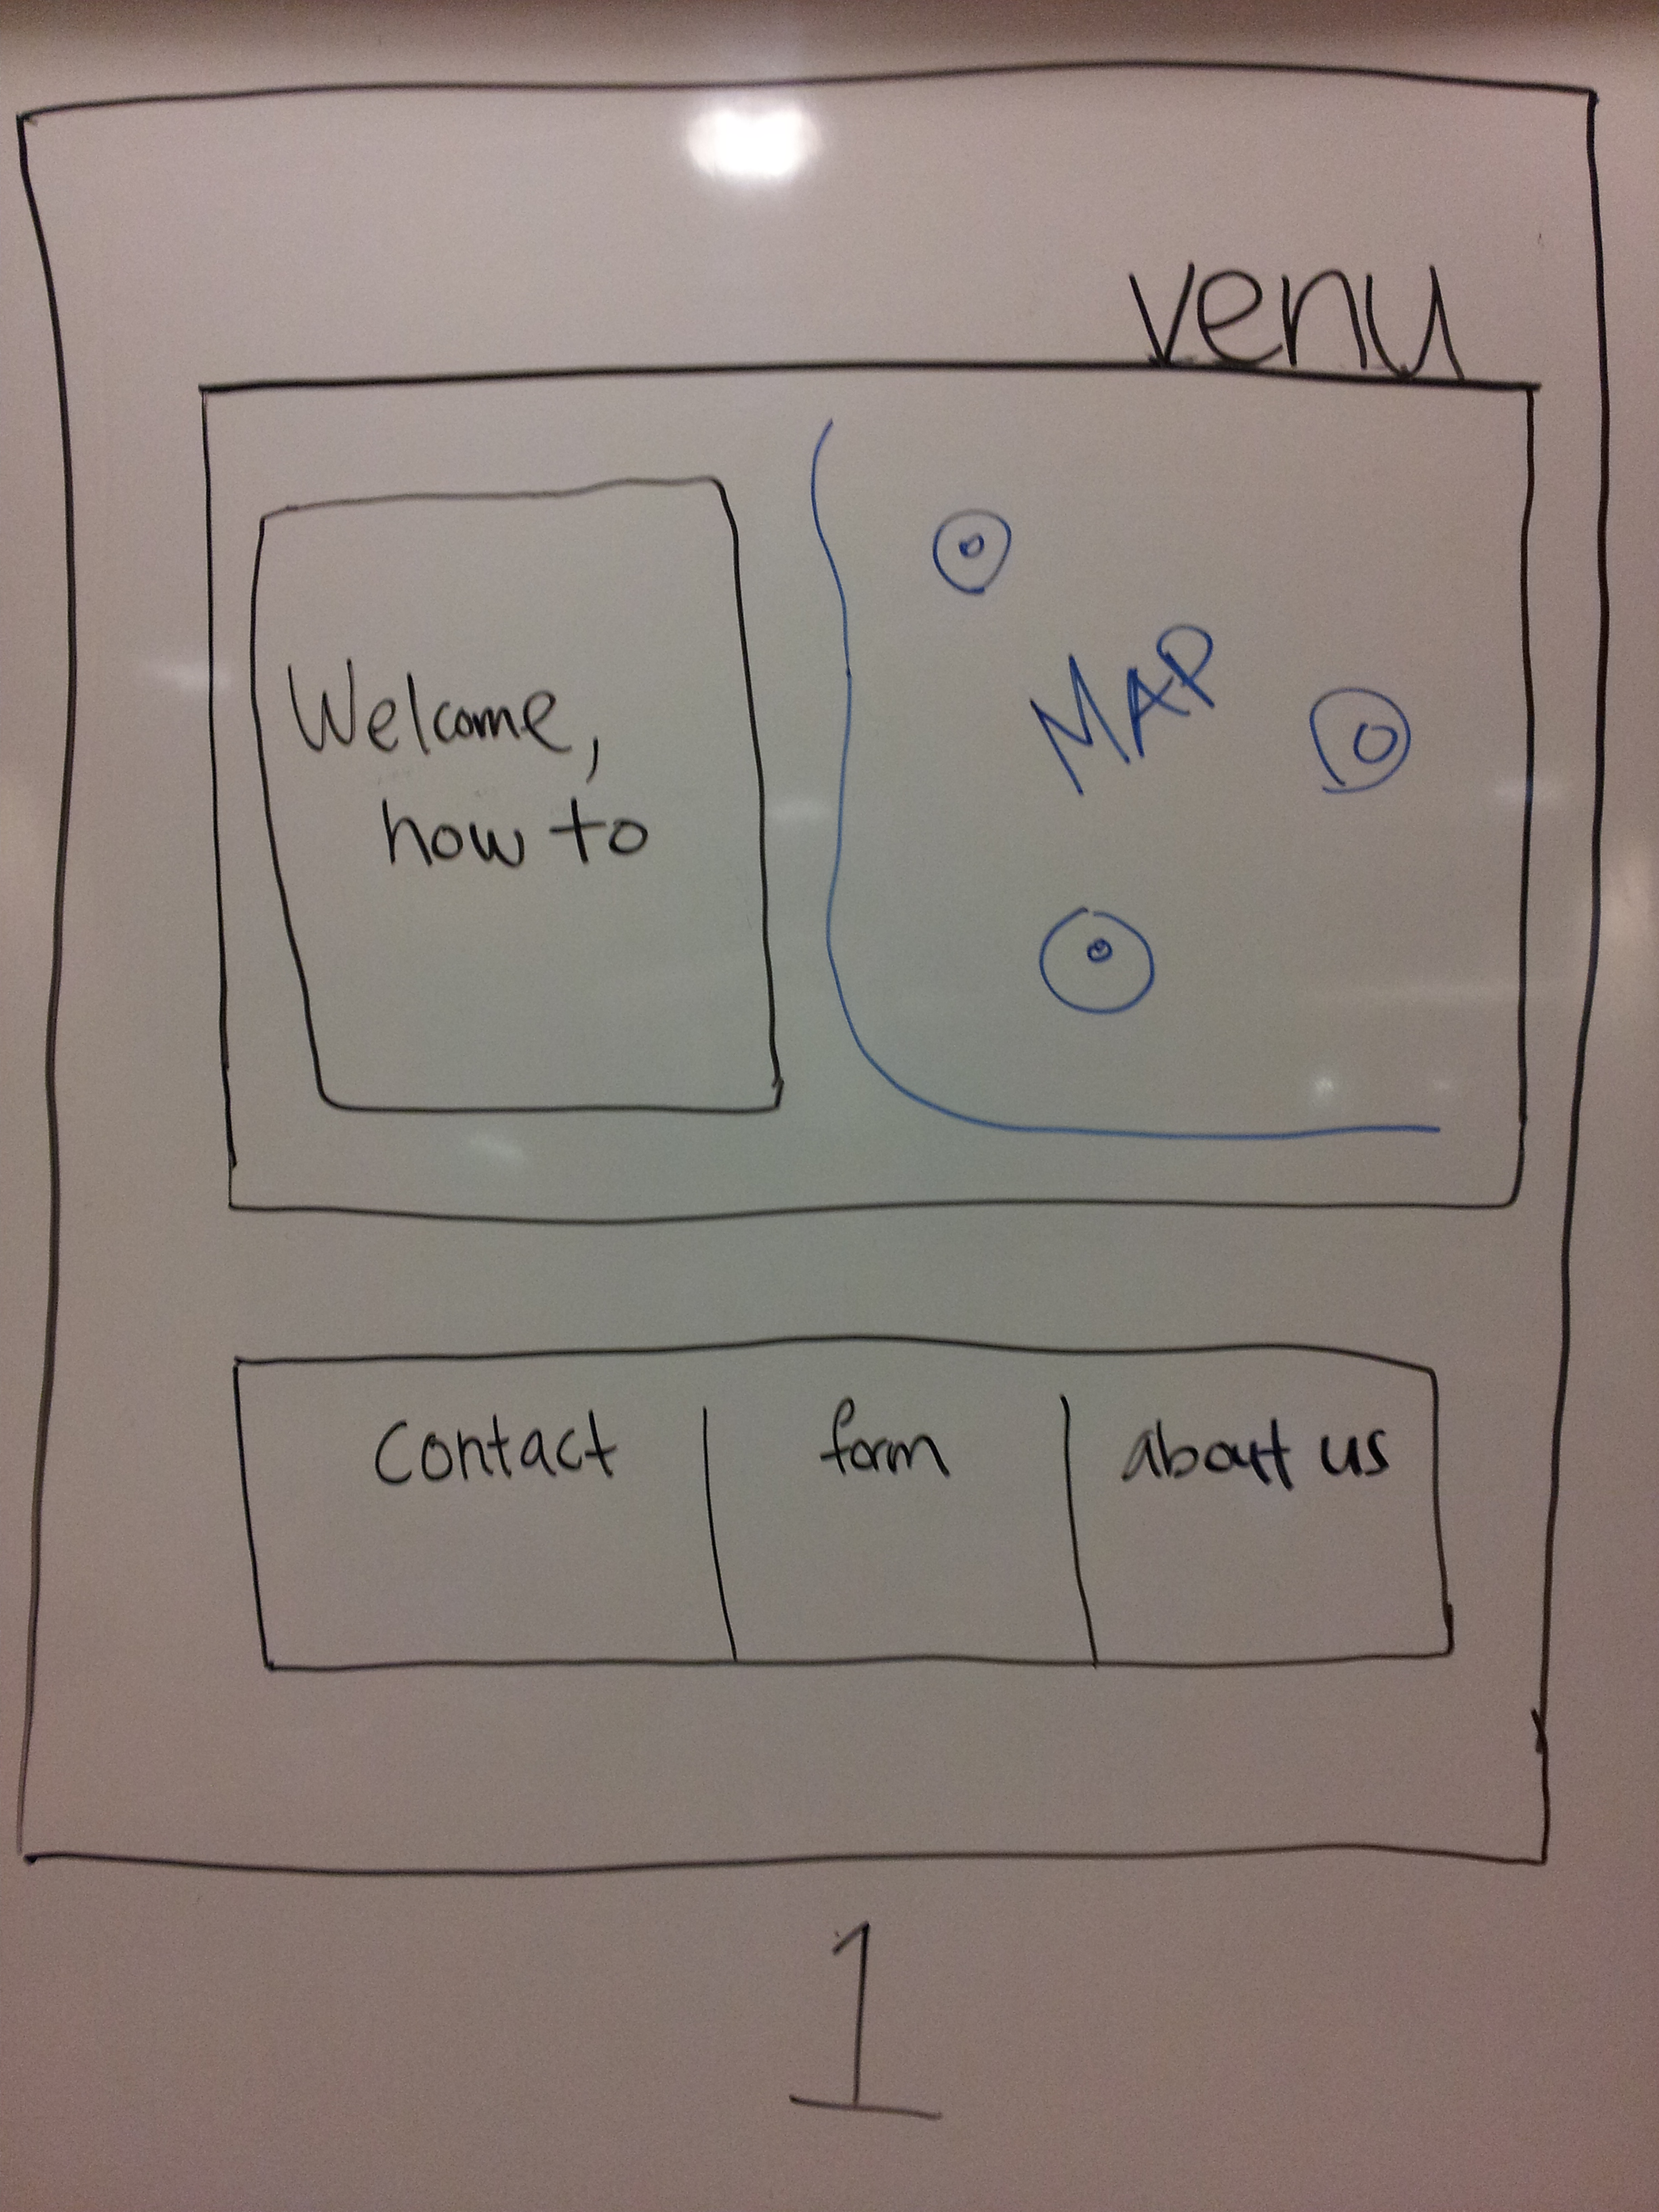 venu
Welcome,
how to
MAP
Contact
form
about us
1